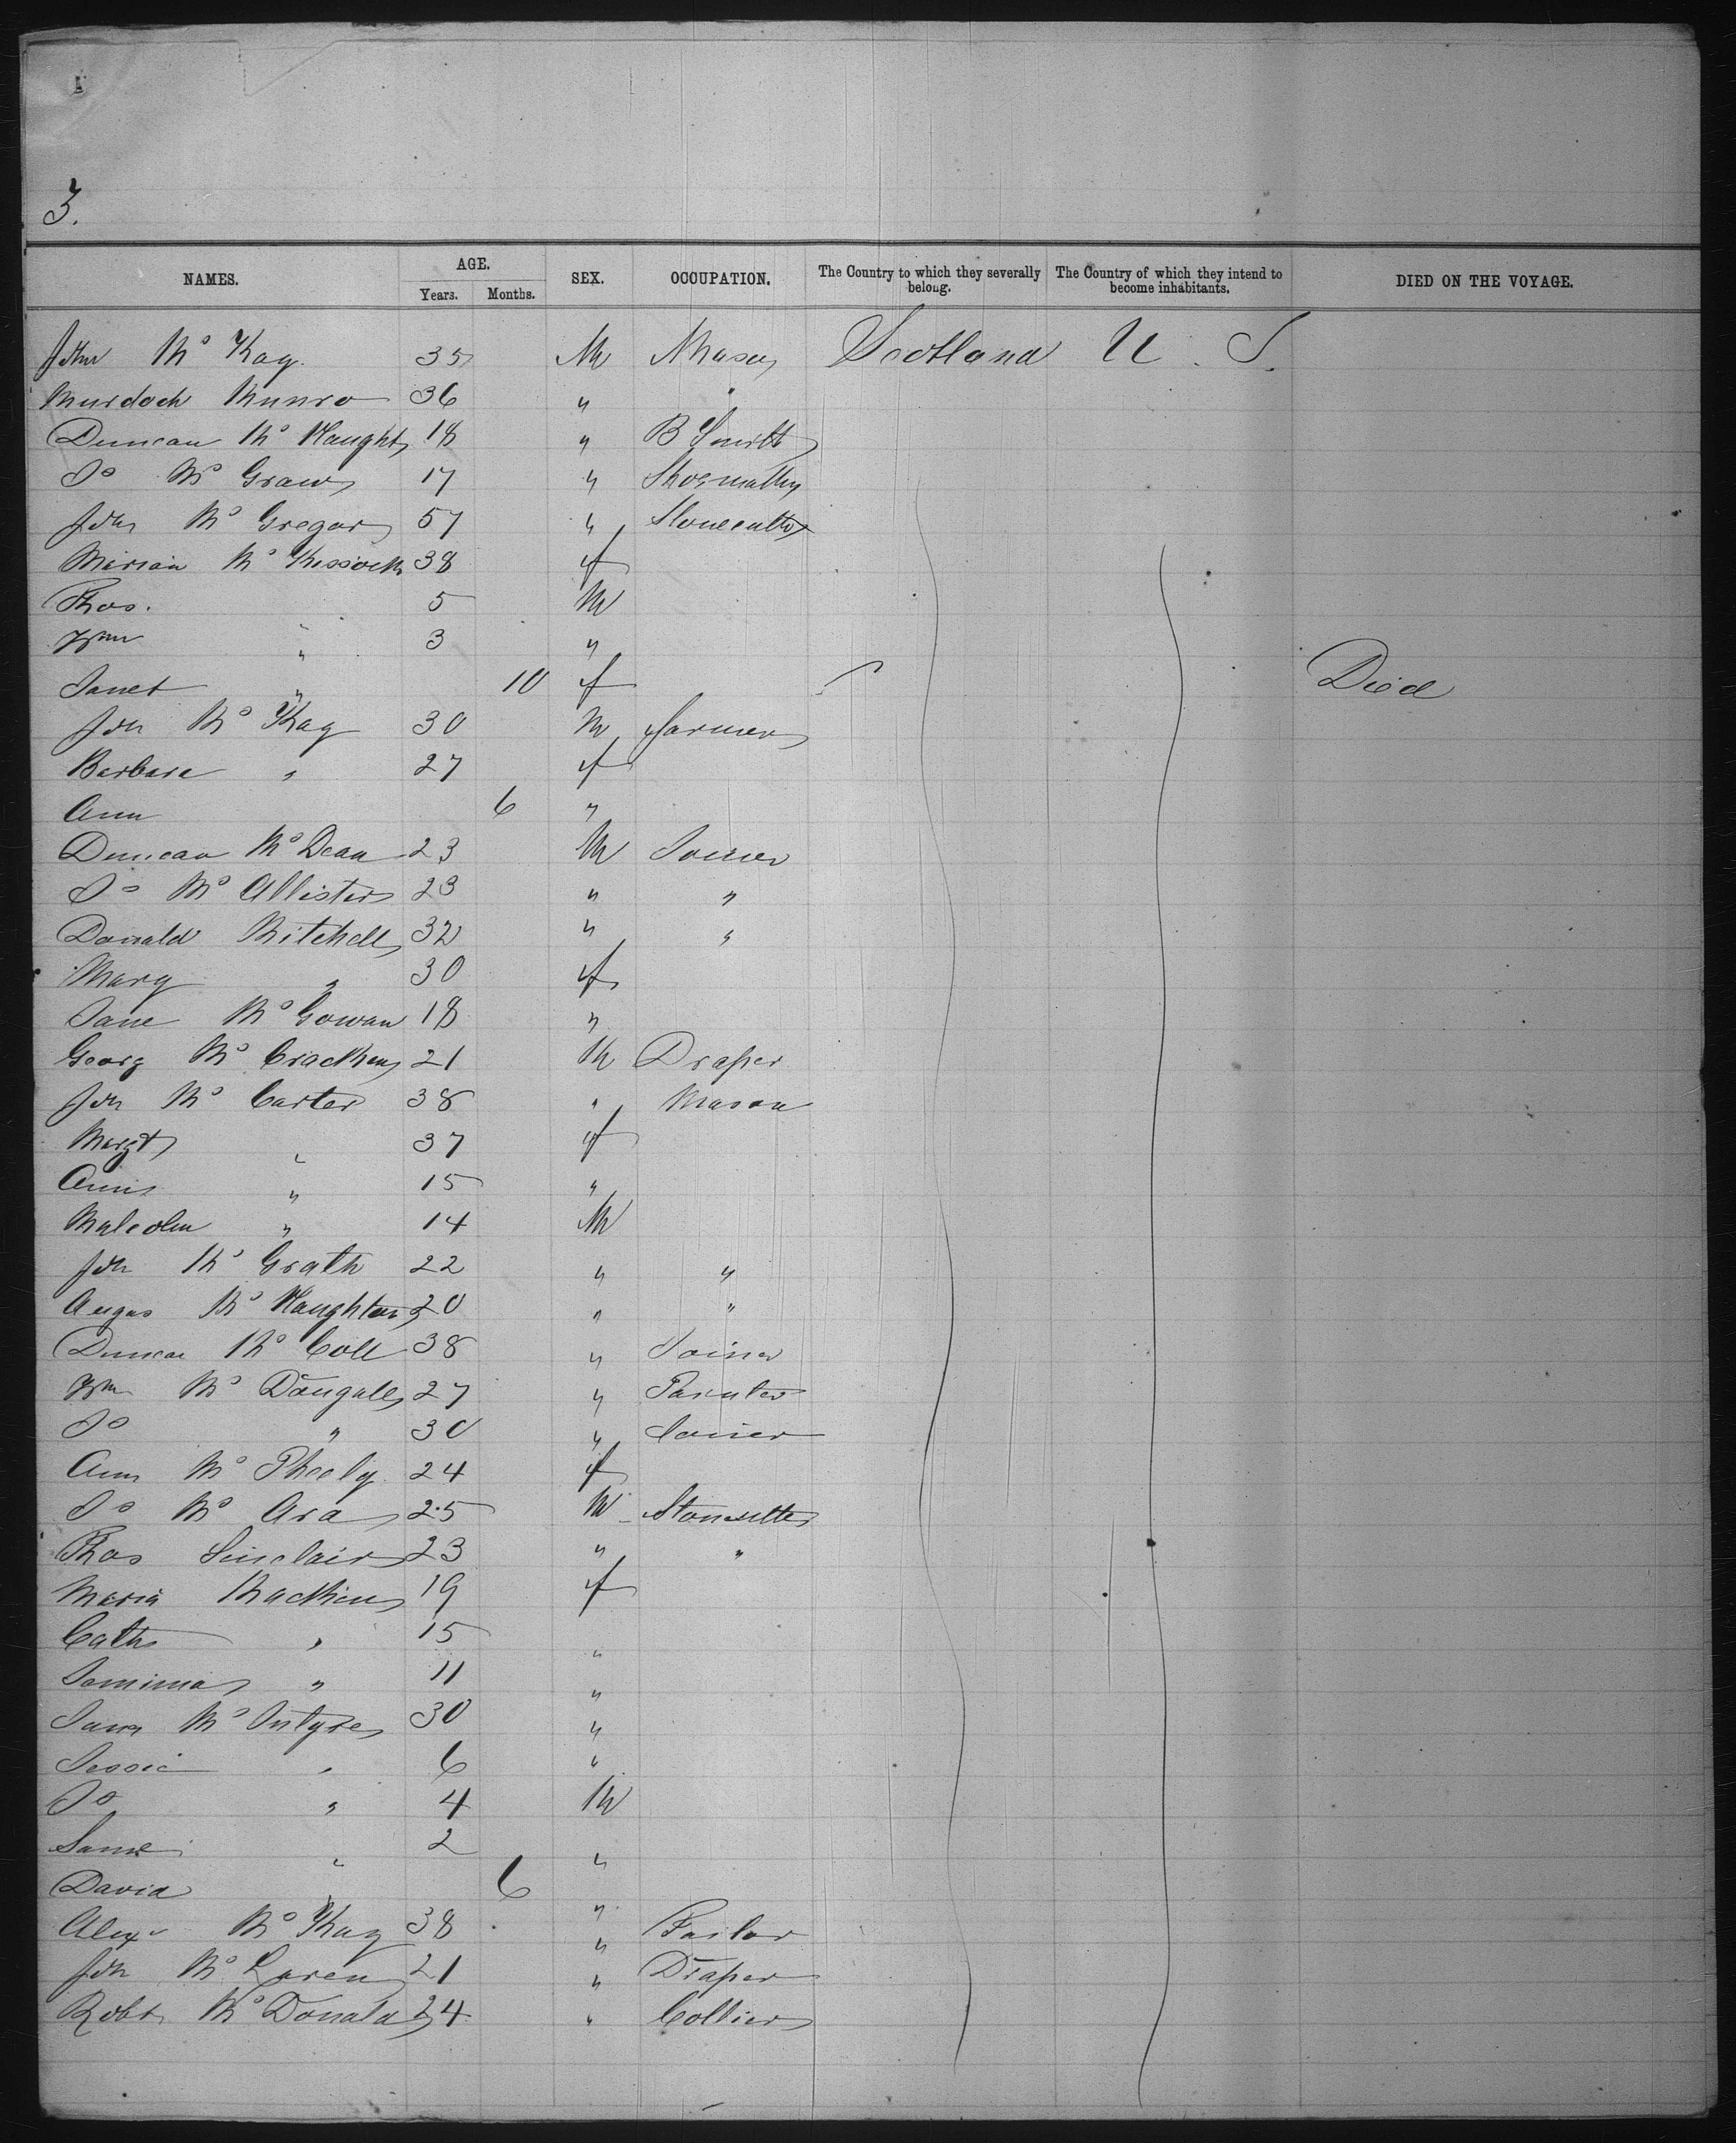 3.
NAMES. AGE. SEX. OCCUPATION. The Country to which they severally belong. The Country of which they intend to become inhabitants. DIED ON THE VOYAGE.
Years. Months.
John Mc Kay 35 M Mason Scotland U. S.
Murdoch Munro 36 " "
Duncan Mc Naught 18 " B Smith
Jo Mc Graw 17 "
Jon Mc Gregor 57 " Stonecutter
Mc Kissock 38 f
Thos. 5 M
Wm " 3 "
Janet " 10 f Died
Jon Mc Kay 30 M farmer
Barbara " 27 f
Ann 6 "
Duncan Mc Dean 23 M Joiner
Jo Mc Allister 23 " "
Donald Mitchell 32 " "
Mary " 30 f
Jane Mc Gowan 18 "
Georg Mc Cracken 21 M Draper
Jon Mc Carter 38 " Mason
Margt " 37 f
" 15 "
Malcolm " 14 M
Jon Mc Grath 22 " "
Angus Mc Naughton 20 " "
Duncan Mc Coll 38 " Joiner
Wm Mc Dougall 27 " Painter
Jo " 30 " Joiner
Ann Mc Pheely 24 f
Jo Mc Ara 25 M Stonecutter
Thos Sinclair 23 " "
Maria 19 f
Cath " 15 "
Jemima " 11 "
Mc Intyre 30 "
Jessie " 6 "
Jo " 4 M
" 2 "
David " 6 "
Alexr Mc Kay 38 " Tailor
Jon Mc Laren 21 " Draper
Robt Mc Donald 24 " Collier